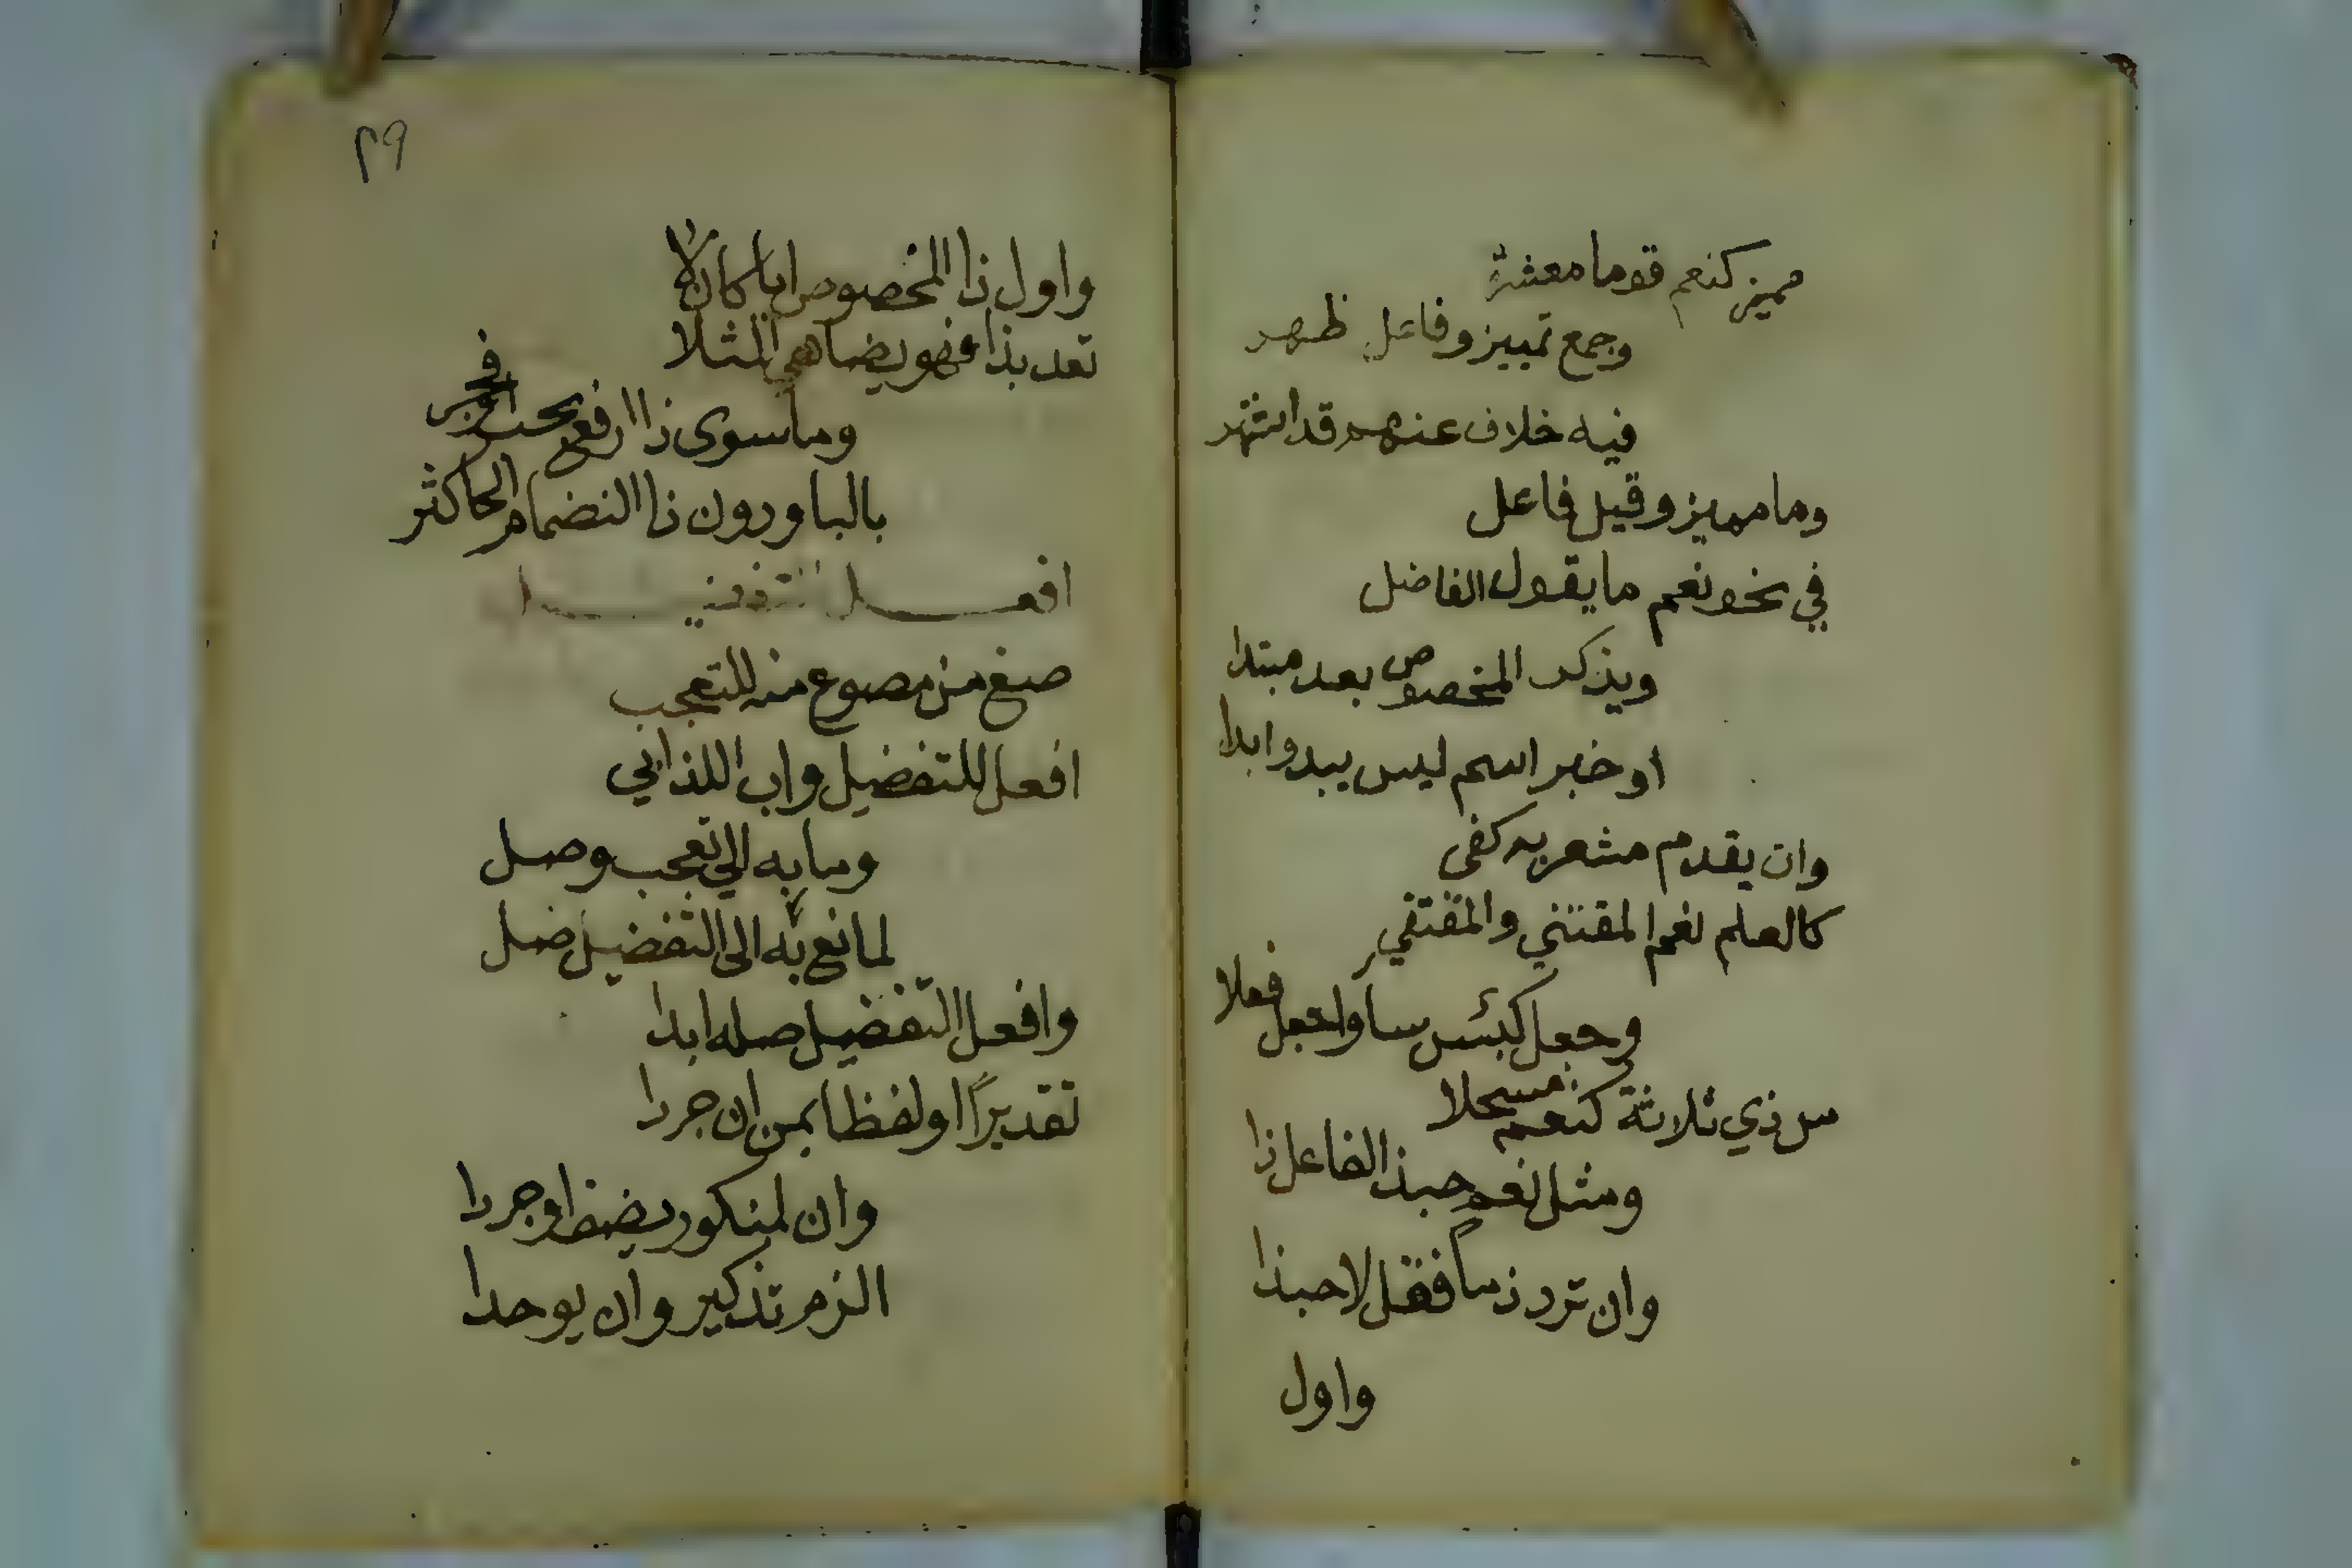 مميز كنعم قوما معشره
وجمع تمييز وفاعل ظهر
فيه خلاف عنهم قد اشتهر
وما مميز وقيل فاعل
في نحو نعم ما يقول الفاضل
ويذكر المخصوص بعد مبتدا
او خبر اسم ليس يبدو ابدا
وان يقدم مشعر به كفى
كالعلم نعم المقتني والمقتفي
وجعل كبئس ساء واجعل فعلا
من ذي ثلاثة كنعم مسجلا
ومثل نعم حبذا الفاعل ذا
وان ترد ذما فقل لا حبذا
واول
٢٩
واول ذا المخصوص ايا كان لا
تعد بذا فهو يضاهي المثلا
وما سوى ذا ارفع بحب او فجر
بالبا ودون ذا انضمام الحا كثر
افعل التفضيل
صغ من مصوغ منه للتعجب
افعل للتفضيل واب اللذ ابي
وما به الى تعجب وصل
لمانع به الى التفضيل صل
وافعل التفضيل صله ابدا
تقديرًا او لفظا بمن ان جردا
وان لمنكور يضف او جردا
الزم تذكير وان يوحدا